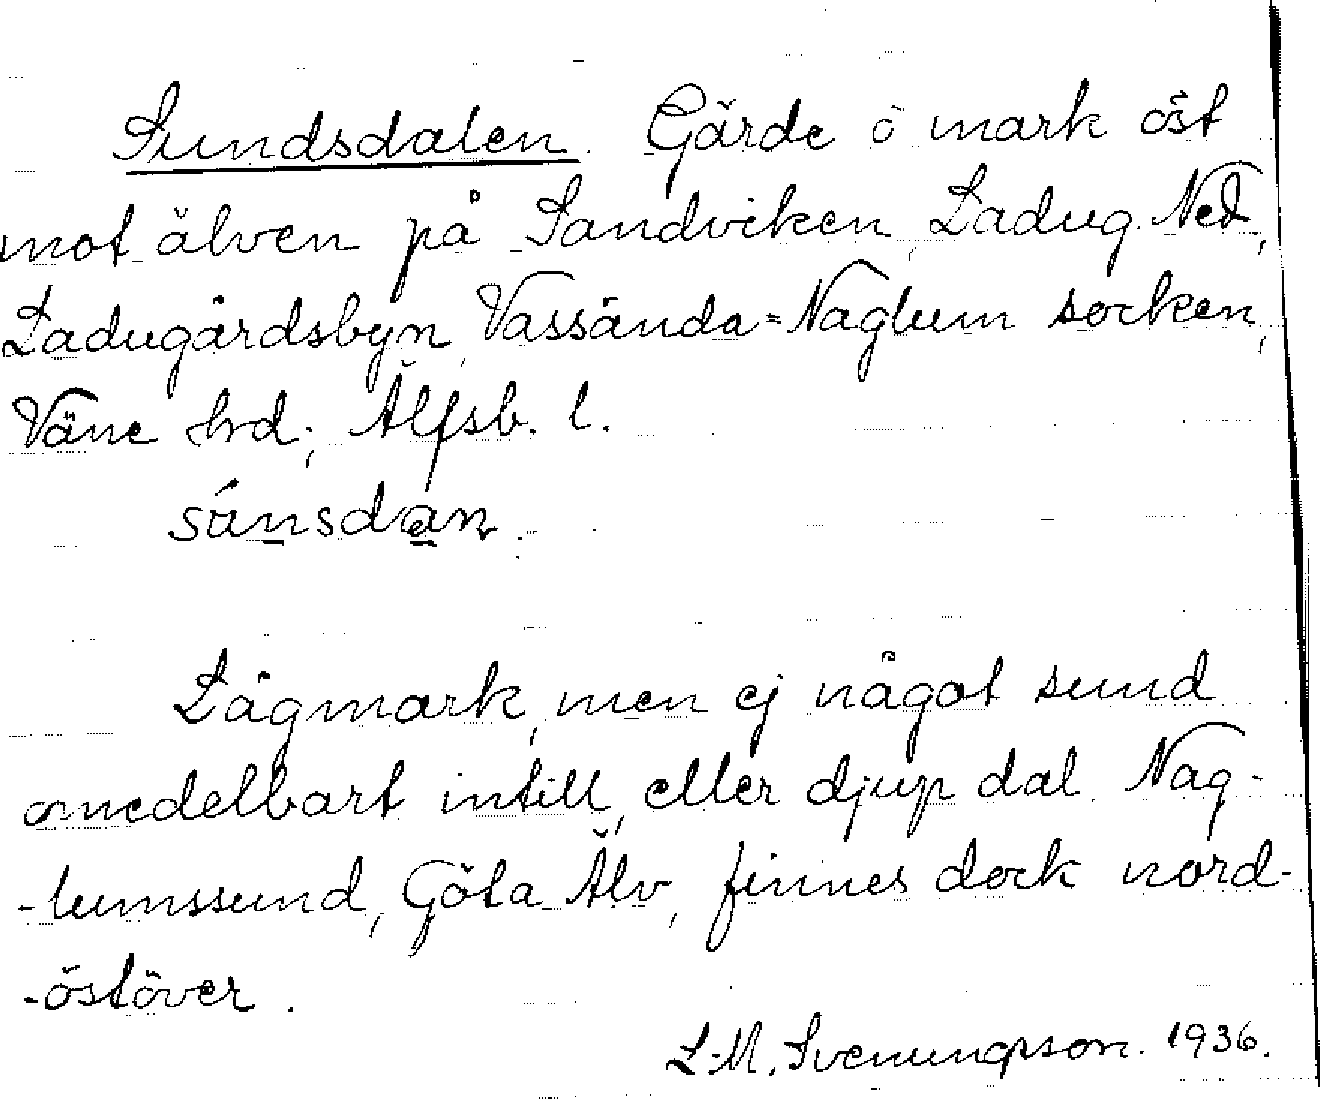 Sundsdalen. Gärde o mark öst
mot älven på Sandviken, Ladug. Ned,
Ladugårdsbyn, Vassända=Naglum socken,
Väne hrd, Älfsb. l.
súnsdan.
Lågmark, men ej något sund
omedelbart intill, eller djup dal. Nag-
-lumssund, Göta Älv, finnes dock nord-
-östöver.
L-M. Svenungsson. 1936.